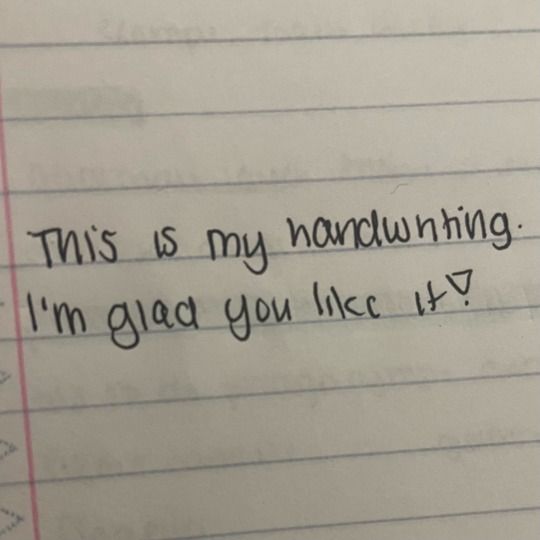 This is my handwriting.
I'm glad you like it!